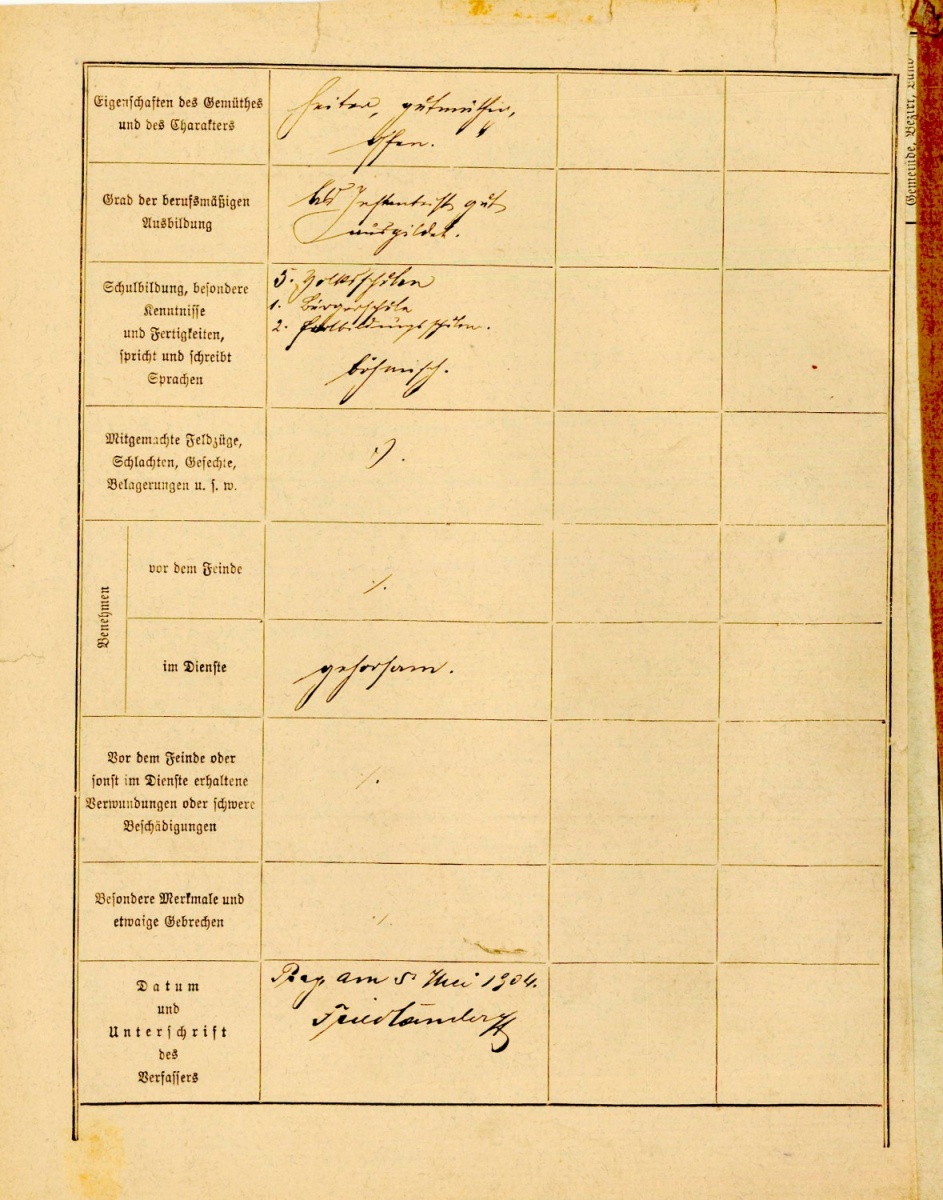 Eigenschaften des Gemüthes
und des Charakters
heiter, gutmüthig,
offen.
Grad der berufsmäßigen
Ausbildung
Als Infanterist gut
ausgebildet.
Schulbildung, besondere
Kenntnisse
und Fertigkeiten,
spricht und schreibt
Sprachen
5. Volksschulen
1. Bürgerschule
2. Fortbildungsschulen.
böhmisch.
Mitgemachte Feldzüge,
Schlachten, Gefechte,
Belagerungen u. s. w.
Benehmen
vor dem Feinde
im Dienste
gehorsam.
Vor dem Feinde oder
sonst im Dienste erhaltene
Verwundungen oder schwere
Beschädigungen
Besondere Merkmale und
etwaige Gebrechen
Datum
und
Unterschrift
des
Verfassers
Prag am 5 Mai 1904.
Friedländer
Gemeinde, Bezirk, Land